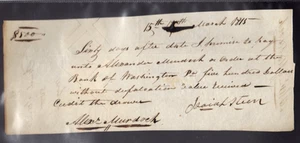 $500 15th March 1815
Sixty days after date I promise to pay
unto Alexander Murdock or Order at the
Bank of Washington five hundred dollars
without defalcation value received
Credit the drawer
Isaiah Steen
Alexr Murdock